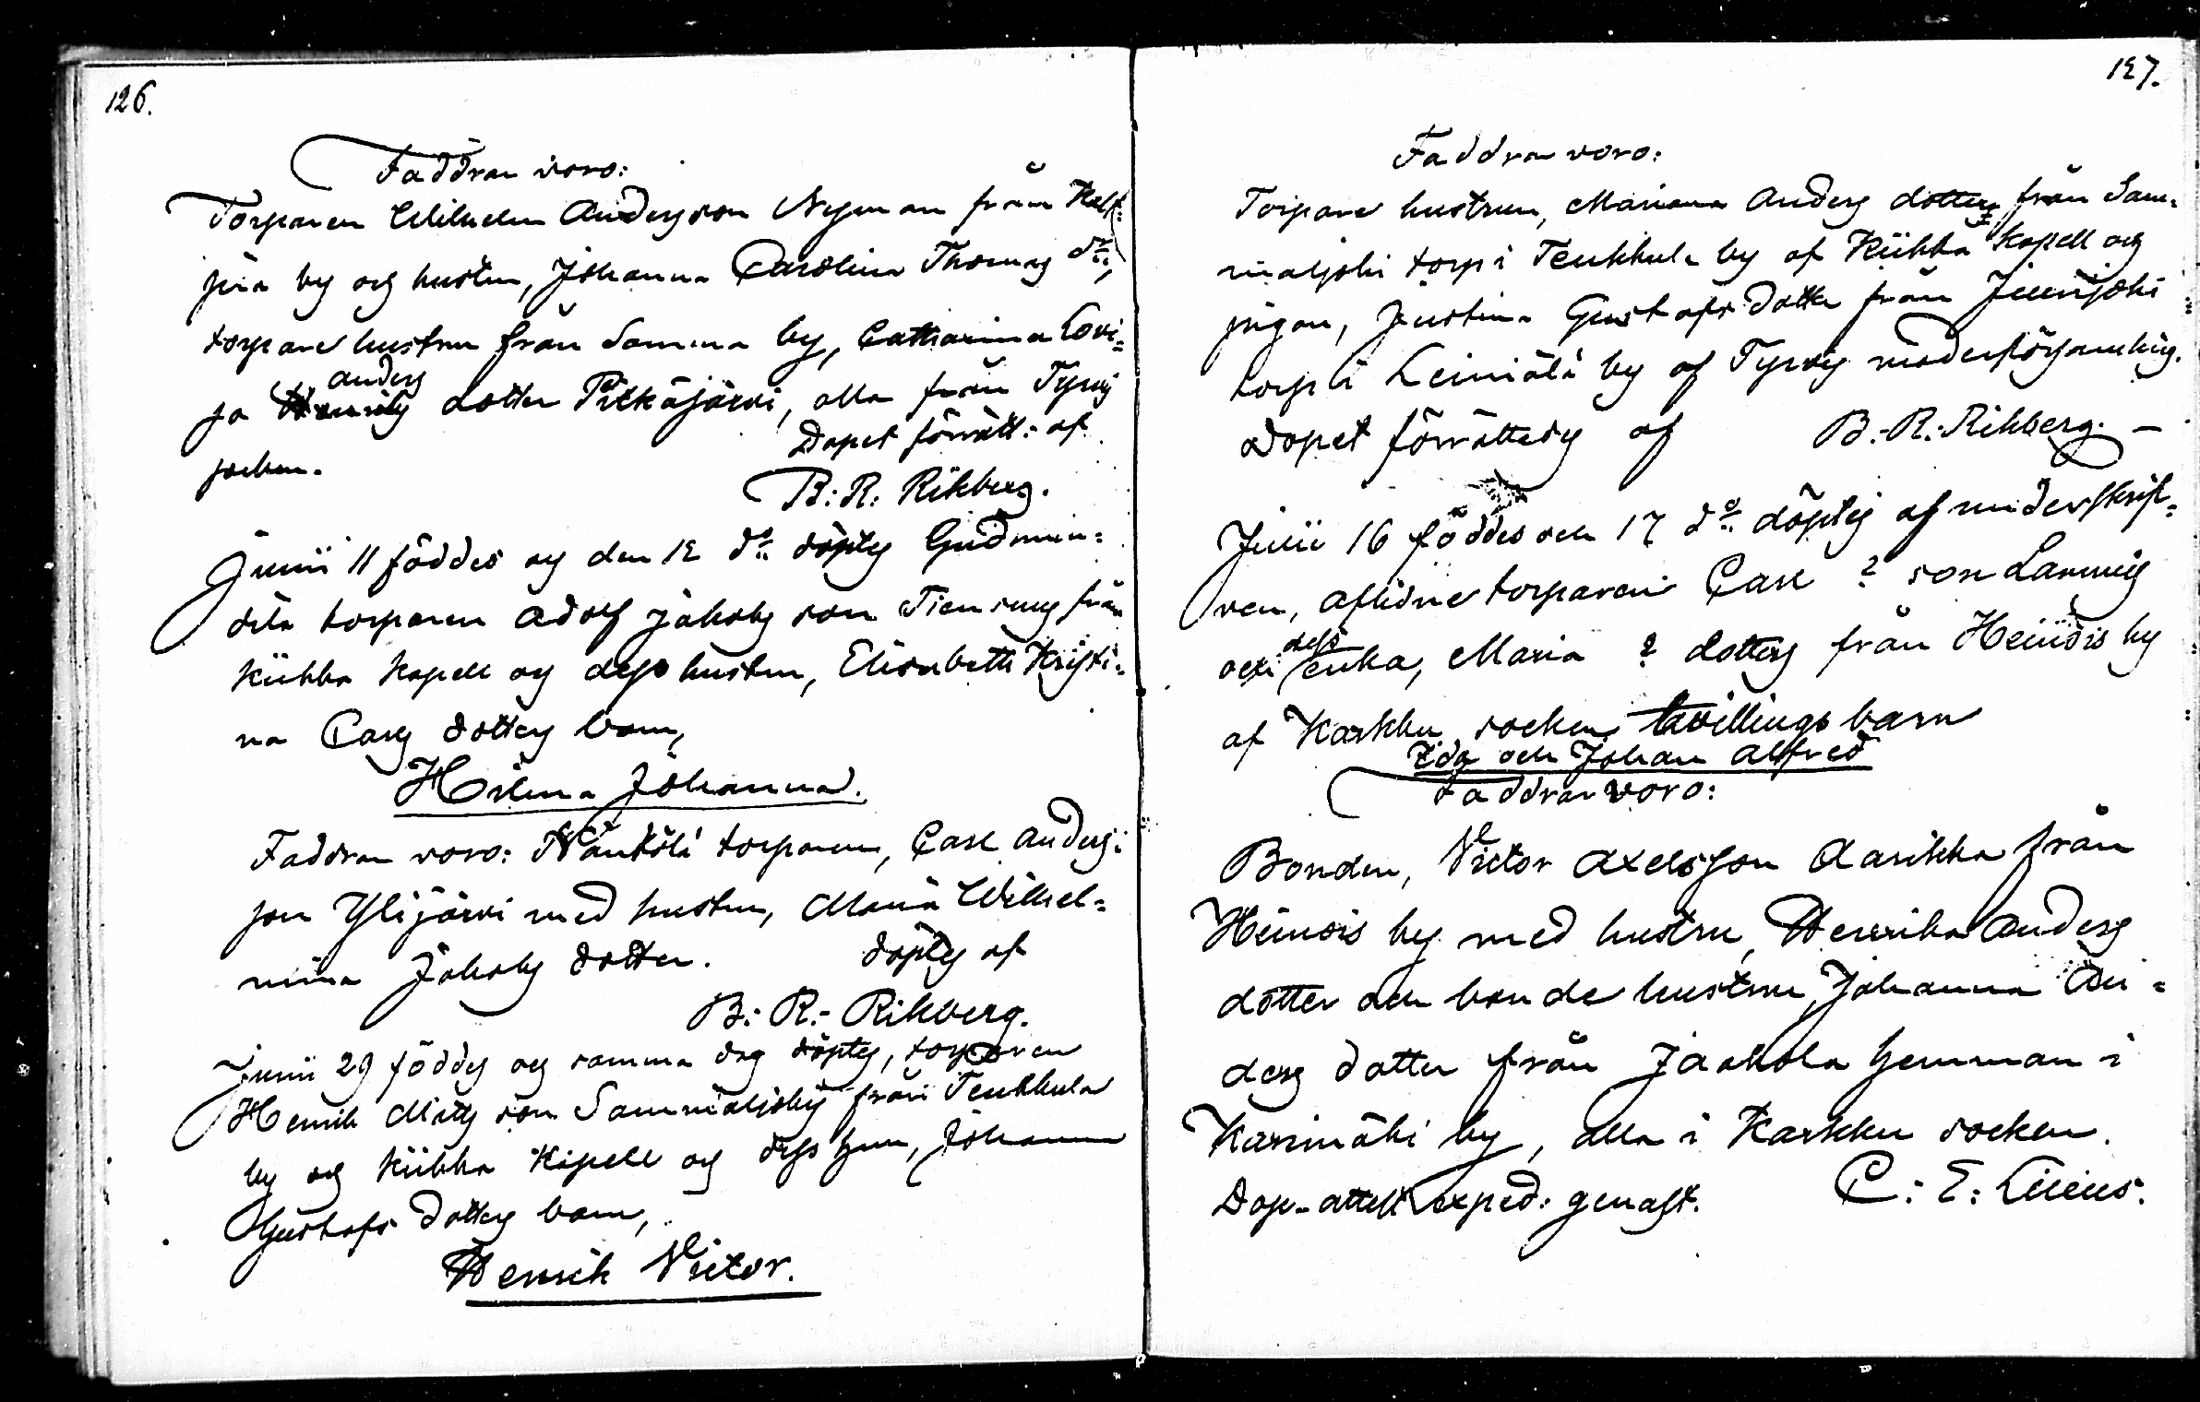 126.
Faddrar voro:
Torparen Wilhelm Andersson Nyman från
by och hustru, Johanna Carolina Thomas dr,
torpare hustru från Samma by, Catharina Lovi=
anders
sa dotter Pitkäjärvi, alla från Tyrvis
socken. Dopet förrätt: af
B: R: Rikberg.
Junii 11 föddes och den 12 do döptes
torparen Adolf Jakobs son från
Kiikka Kapell och dess hustru, Elisabeth Kristi=
na Carls dotters barn,
Hilma Johanna.
Faddrar voro: torparen, Carl Anders=
son Ylijärvi med hustru, Maria Wilhel=
mina Jakobs dotter. döptes af
B: R:- Rikberg.
Junii 29 föddes och samma dag döptes, torparen
Henrik Matts son Sammaljokis från Teukkula
by och Kiikka Kapell och dess hru, Johanna
Gustafs dotters barn,
Henrik Victor.
127.
Faddrar voro:
Torpare hustrun, Mariana Anders dotter från Sam=
maljoki torp i Teukkula by af Kiikka Kapell och
pigan, Justina Gustafs dotter från
torp i Leiniälä by af Tyrvis moderförsamling.
Dopet förrättades af B:-R:-Rikberg. –
Julii 16 föddes och 17 do döptes af underskrif=
ven, aflidne torparen Carl ? son
dess
och enka, Maria ? dotters från Heinois by
af Karkku socken tvillings barn
Ida och Johan Alfred
Faddrar voro:
Bonden, Victor Axelsson Aarikka från
Heinois by med hustru, Henrika Anders
dotter och bonde hustrun, Johanna An=
ders dotter från Jaakola hemman i
Karimäki by, alla i Karkku socken.
Dop-attest exped: genast. C: E: Lilius.